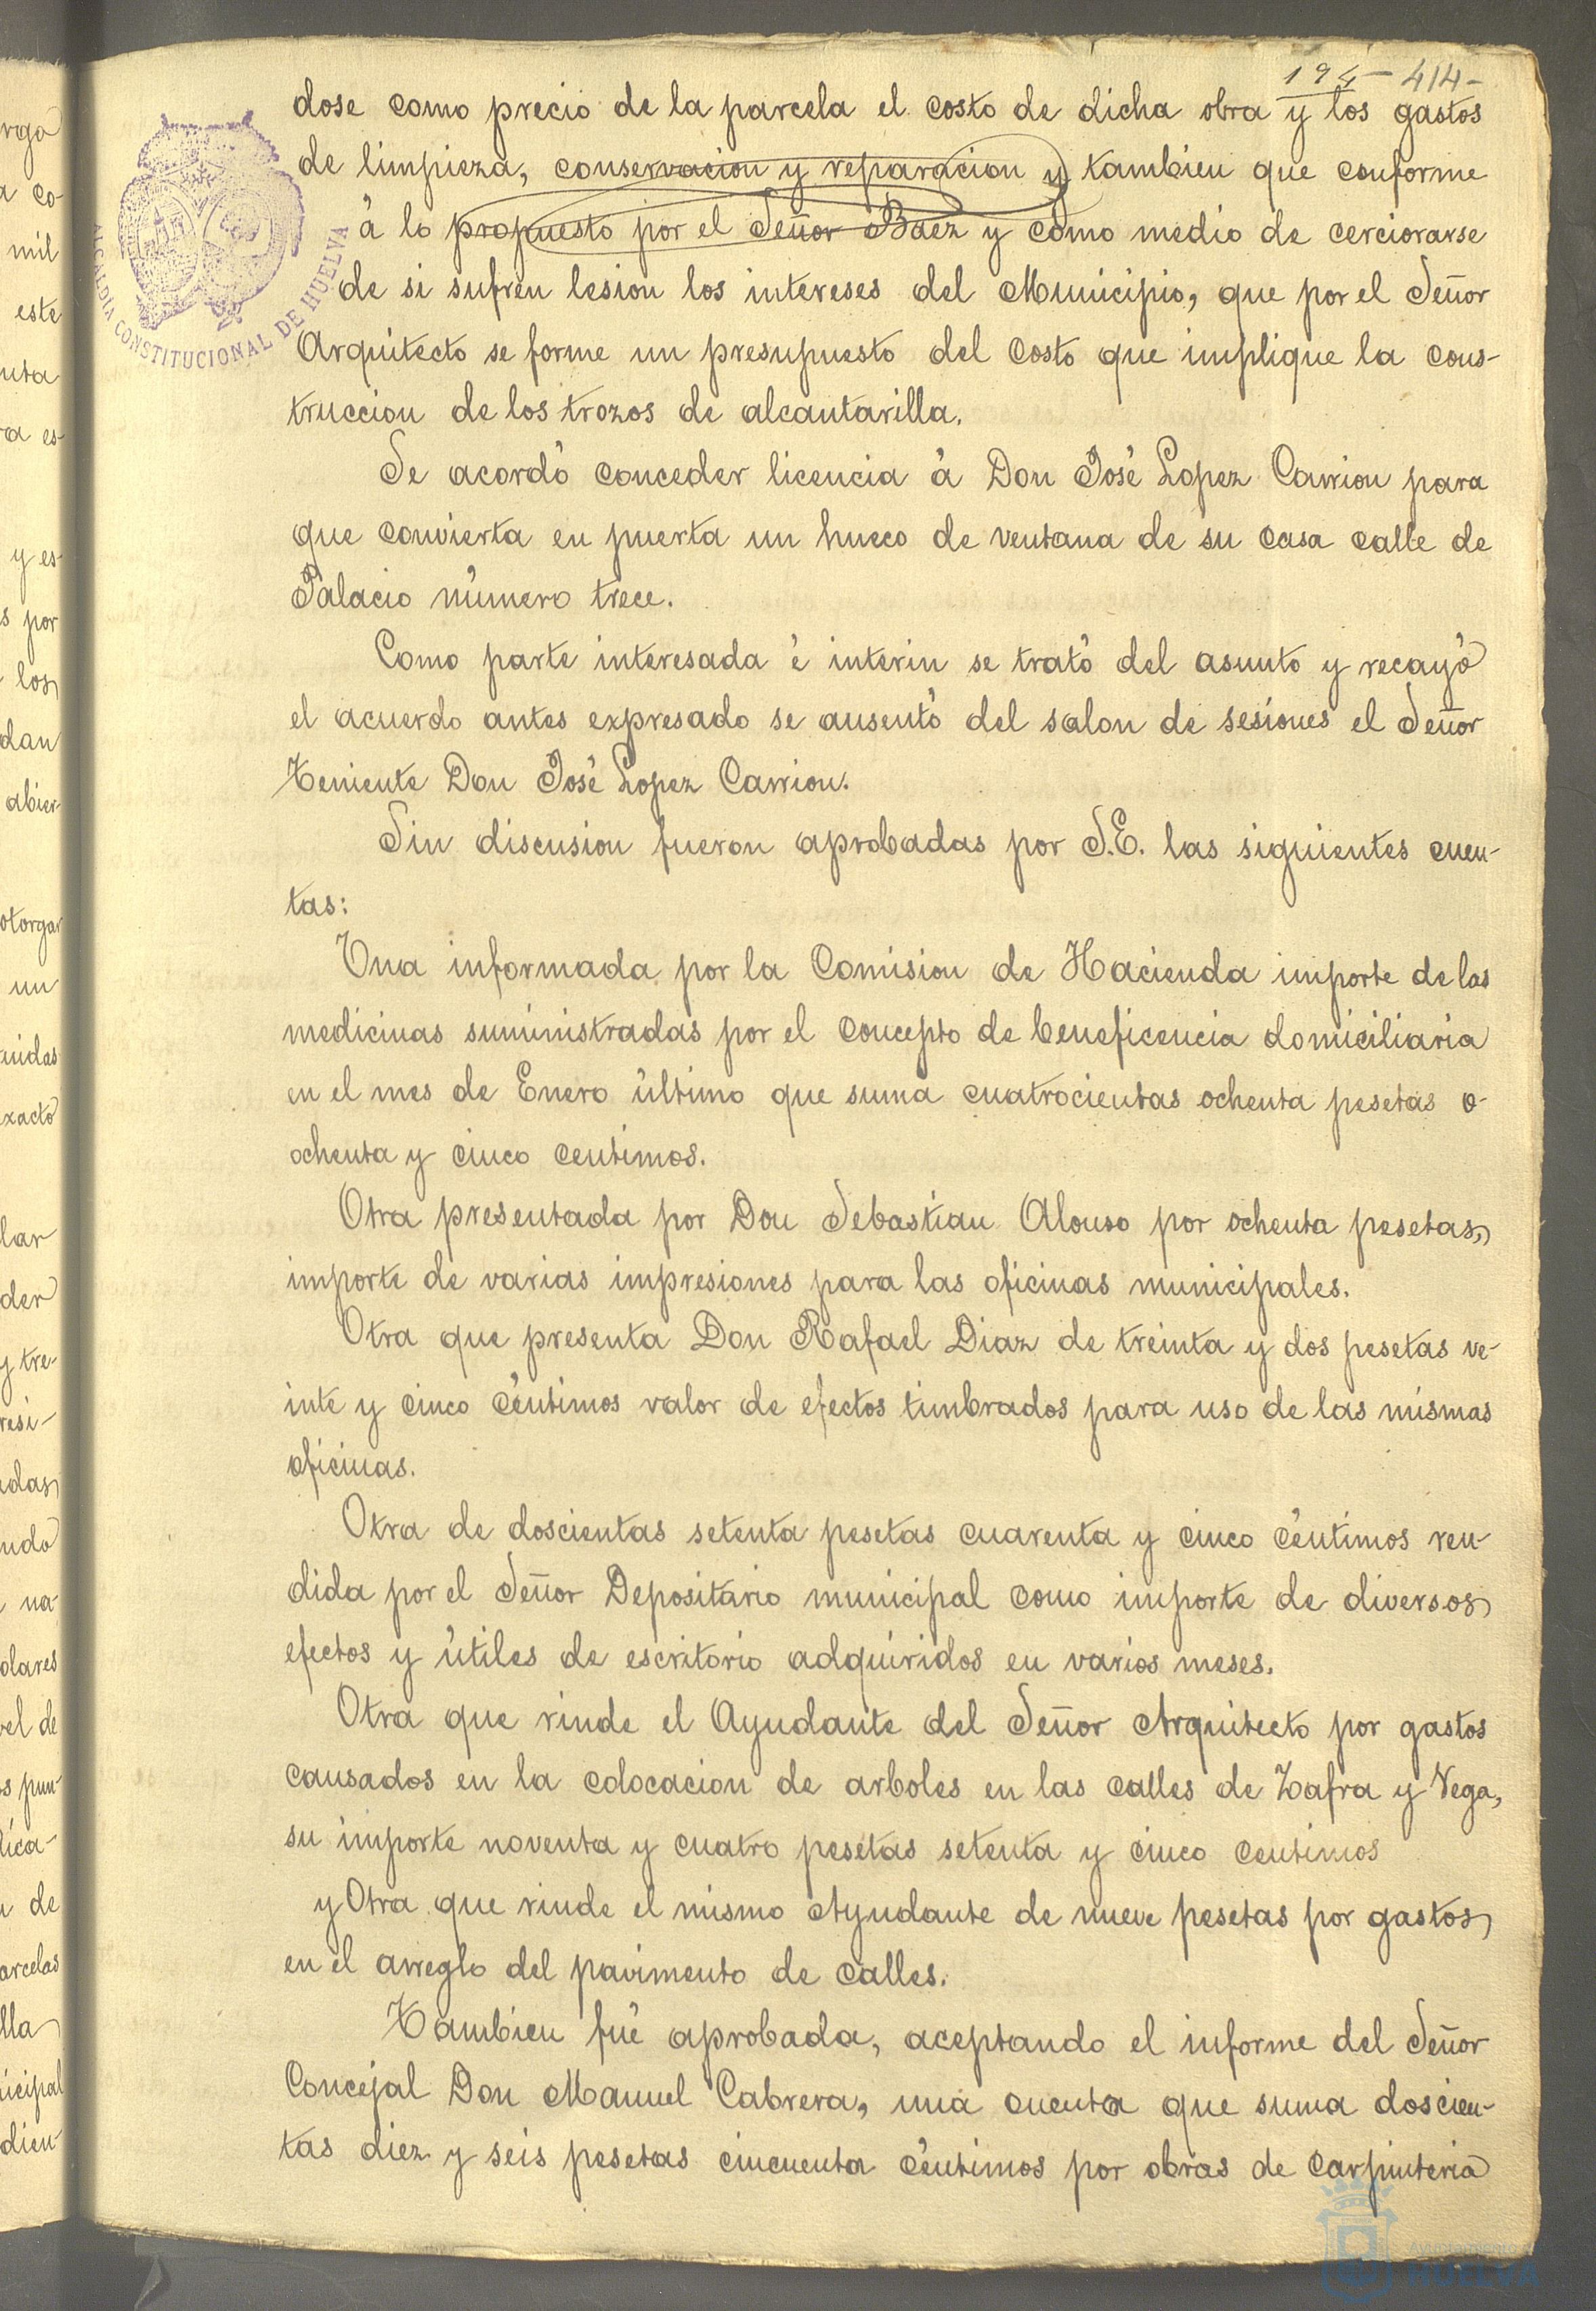 194- 414-
dose como precio de la parcela el costo de dicha obra y los gastos
de limpieza, conservacion y reparacion y tambien que conforme
á lo propuesto por el Señor Baez y como medio de cerciorarse
de si sufren lesion los intereses del Municipio, que por el Señor
Arquitecto se forme un presupuesto del costo que implique la cons-
truccion de los trozos de alcantarilla.
Se acordó conceder licencia á Don José Lopez Carrion para
que convierta en puerta un hueco de ventana de su casa calle de
Palacio número trece.
Como parte interesada é interin se trató del asunto y recayó
el acuerdo antes expresado se ausentó del salon de sesiones el Señor
Teniente Don José Lopez Carrion.
Sin discusion fueron aprobadas por S.E. las siguientes cuen-
tas:
Una informada por la Comision de Hacienda importe de las
medicinas suministradas por el concepto de beneficencia domiciliaria
en el mes de Enero último que suma cuatrocientas ochenta pesetas o-
ochenta y cinco centimos.
Otra presentada por Don Sebastian Alonso por ochenta pesetas,
importe de varias impresiones para las oficinas municipales.
Otra que presenta Don Rafael Diaz de treinta y dos pesetas ve-
inte y cinco céntimos valor de efectos timbrados para uso de las mismas
oficinas.
Otra de doscientas setenta pesetas cuarenta y cinco céntimos ren-
dida por el Señor Depositario municipal como importe de diversos
efectos y útiles de escritorio adquiridos en varios meses.
Otra que rinde el Ayudante del Señor Arquitecto por gastos
causados en la colocacion de arboles en las calles de Zafra y Vega,
su importe noventa y cuatro pesetas setenta y cinco centimos
y Otra que rinde el mismo Ayudante de nueve pesetas por gastos
en el arreglo del pavimento de calles.
Tambien fué aprobada, aceptando el informe del Señor
Concejal Don Manuel Cabrera, una cuenta que suma doscien-
tas diez y seis pesetas cincuenta céntimos por obras de carpinteria
ALCALDÍA CONSTITUCIONAL DE HUELVA
rgo
a co-
mil
este
nta
ra es-
y es-
s por
los
dan
abier-
otorgar
un
uidas
exacto
lar
der
y tre-
resi-
edas
ndo
na-
olares
vel de
s pun-
lica-
n de
arcelas
lla
nicipal
dien-
Ayuntamiento
HUELVA